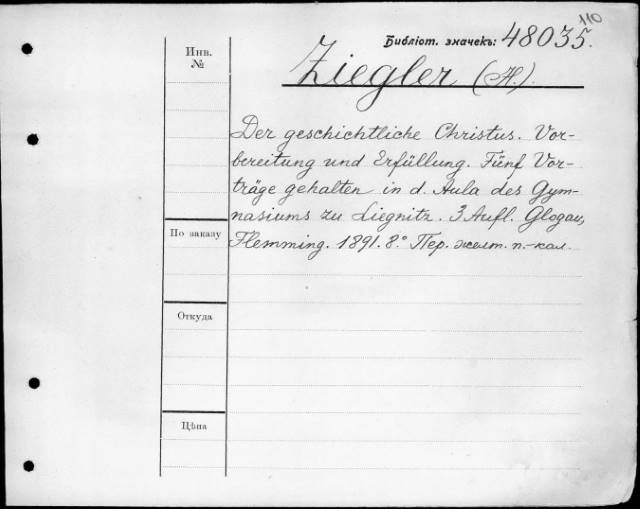 110
Библіот. значекъ: 48035.
Инв.
№
Ziegler (H.).
Der geschichtliche Christus. Vor-
bereitung und Erfüllung. Fünf Vor-
träge gehalten in d. Aula des Gym-
nasiums zu Liegnitz. 3 Aufl. Glogau,
По заказу
Flemming. 1891. 8.° Пер. желт. п.-кал.
Откуда
Цѣна